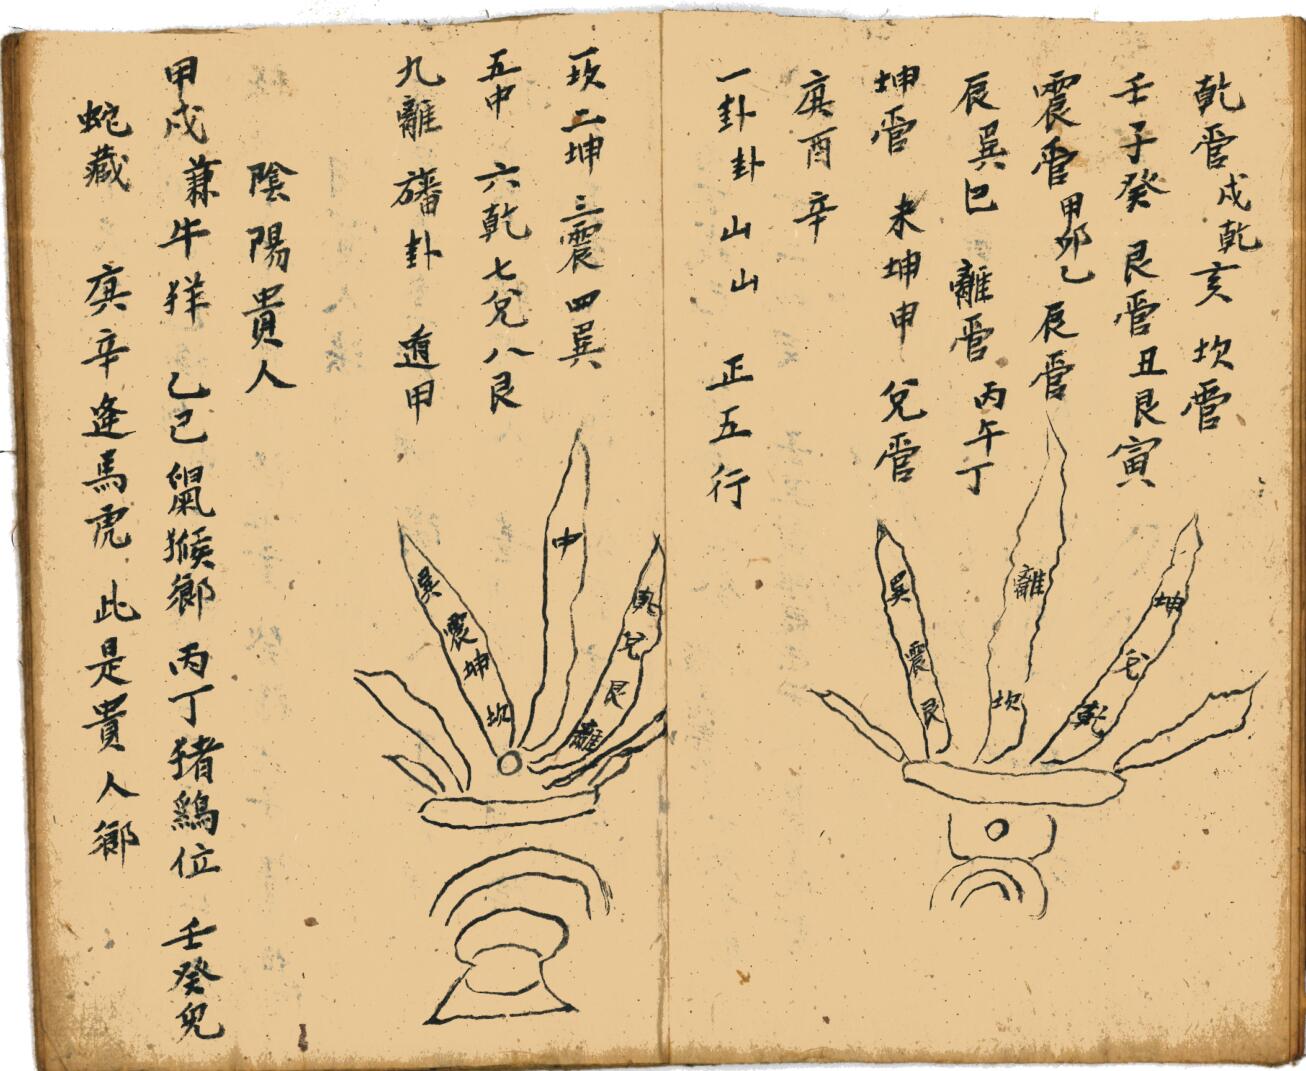 乾管戌乾亥 坎管
壬子癸 艮管丑艮寅
震管甲卯乙 辰管
辰巽巳 離管丙午丁
坤管 未坤申 兌管
庚酉辛
一卦卦山山 正五行
離
坎
巽
震
艮
坤
兌
乾
一坎二坤三震四巽
五中 六乾七兌八艮
九離 卦 遁甲
中
巽
震
坤
坎
兌
艮
離
陰陽貴人
甲戊兼牛羊 乙己鼠猴鄉 丙丁猪鷄位 壬癸兔
蛇藏 庚辛逢馬虎 此是貴人鄉